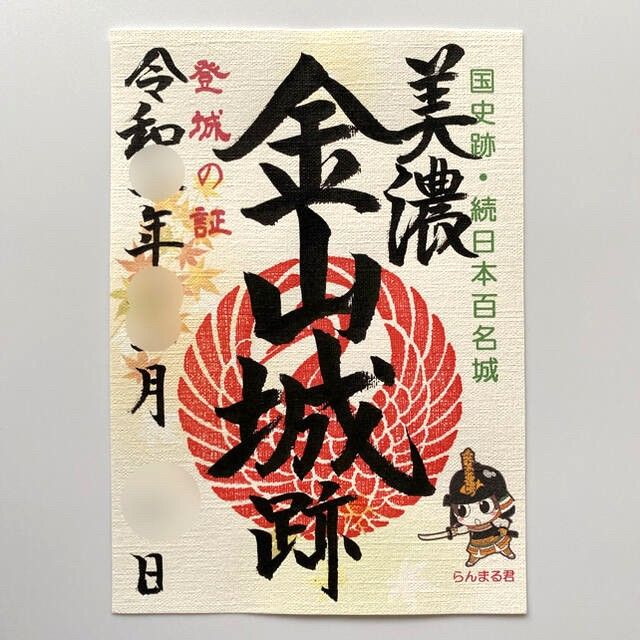 国史跡・続日本百名城
美濃
金山城跡
登城の証
令和 年 月 日
らんまる君